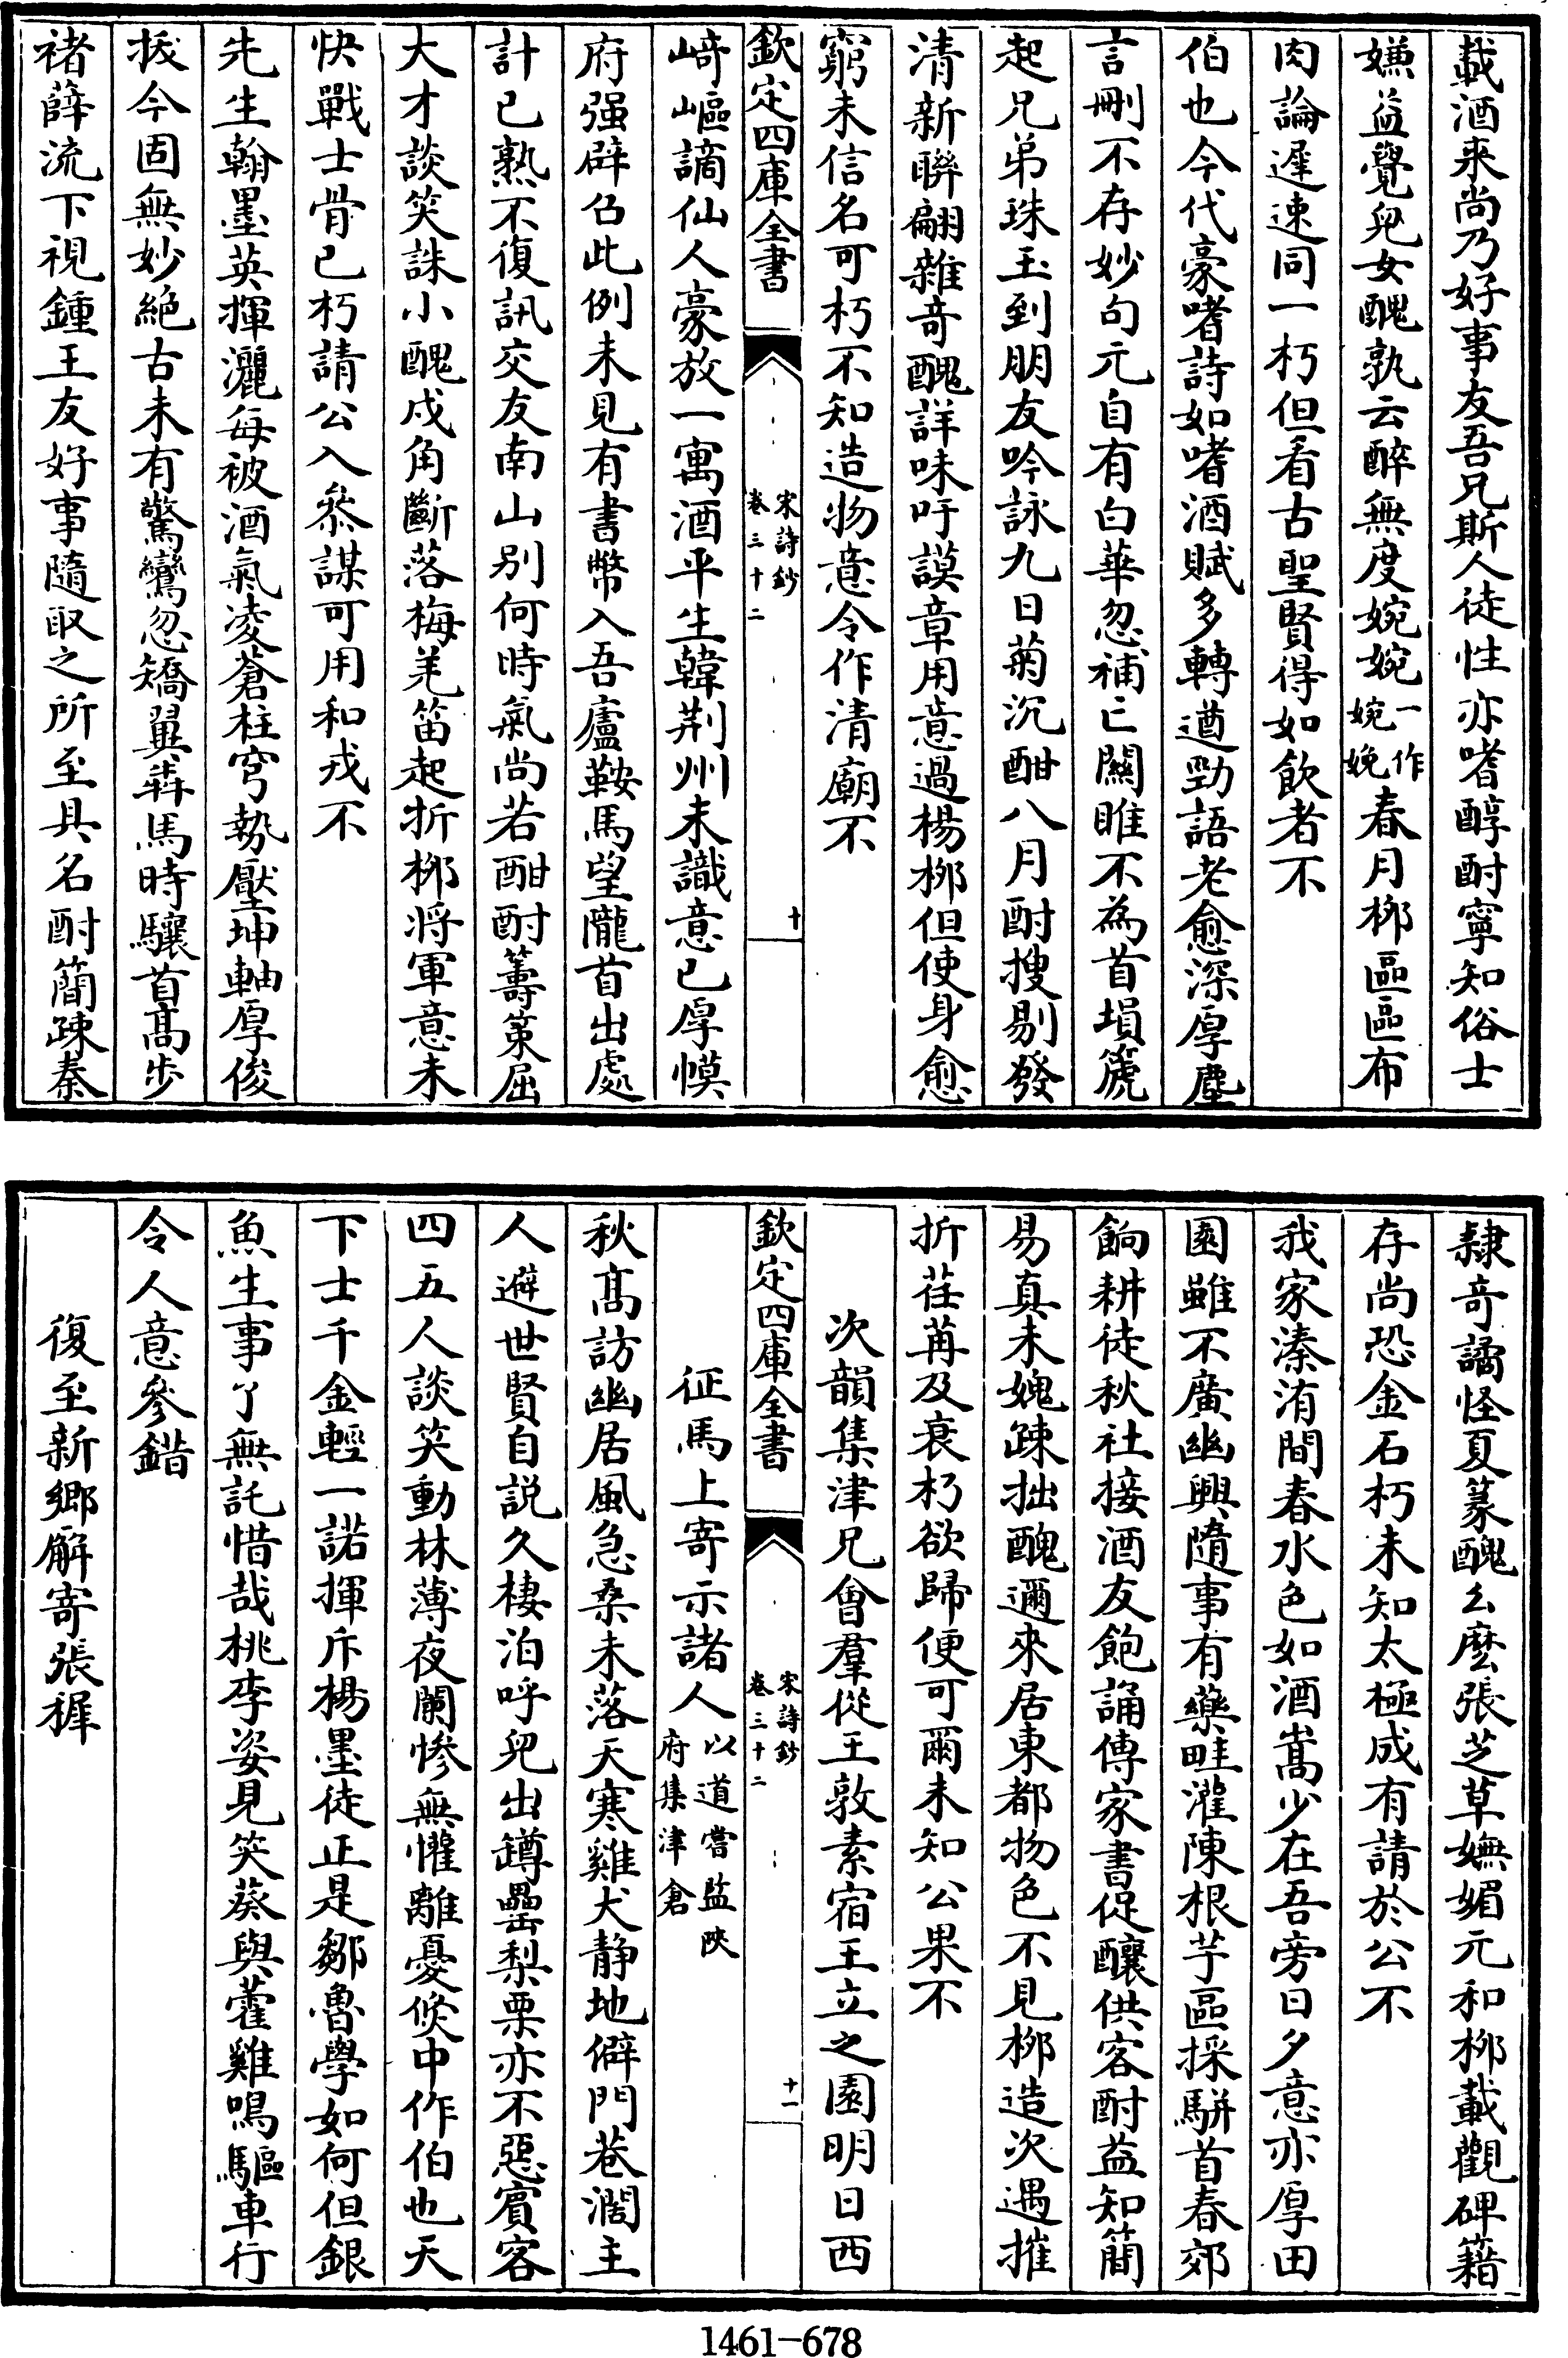 載酒來尚乃好事友吾兄斯人徒性亦嗜醇酎寧知俗士
嫌益覺兒女醜孰云醉無度婉婉一作婉娩春月栁區區布
肉論遲速同一朽但看古聖賢得如飲者不
伯也今代豪嗜詩如嗜酒賦多轉遒勁語老愈深厚塵
言刪不存妙句元自有白華忽補亡關雎不為首塤箎
起兄弟珠玉到朋友吟詠九日菊沉酣八月酎搜剔發
清新聨翩雜竒醜詳味吁謨章用意過楊栁但使身愈
窮未信名可朽不知造物意令作清廟不
欽定四庫全書
宋詩鈔
卷三十二
十
﨑嶇謫仙人豪放一寓酒平生韓荆州未識意已厚幙
府强辟召此例未見有書幣入吾廬鞍馬望隴首出處
計已熟不復訊交友南山别何時氣尚若酣酎籌策屈
大才談笑誅小醜戍角斷落梅羌笛起折栁將軍意未
快戰士骨已朽請公入叅謀可用和戎不
先生翰墨英揮灑每被酒氣凌蒼柱穹勢壓坤軸厚俊
拔今固無妙絶古未有驚鸞忽矯翼犇馬時驤首髙步
褚薛流下視鍾王友好事隨取之所至具名酎簡疎秦
隸竒譎怪夏篆醜幺麽張芝草嫵媚元和栁載觀碑籍
存尚恐金石朽未知太極成有請於公不
我家溱洧間春水色如酒嵩少在吾旁日夕意亦厚田
園雖不廣幽興隨事有藥畦灌陳根芋區採駢首春郊
餉耕徒秋社接酒友飽誦傳家書促釀供客酎益知簡
易真未媿疎拙醜邇來居東都物色不見栁造次遇摧
折荏苒及衰朽欲歸便可爾未知公果不
次韻集津兄㑹羣從王敦素宿王立之園明日西
欽定四庫全書
宋詩鈔
卷三十二
十一
征馬上寄示諸人以道嘗監陜府集津倉
秋髙訪幽居風急桑未落天寒雞犬静地僻門巷濶主
人避世賢自説久棲泊呼兒出罇罍梨栗亦不惡賓客
四五人談笑動林薄夜闌慘無懽離憂倐中作伯也天
下士千金輕一諾揮斥楊墨徒正是鄒魯學如何但銀
魚生事了無託惜哉桃李姿見笑葵與藿雞鳴驅車行
令人意參錯
復至新鄉廨寄張穉
1461-678